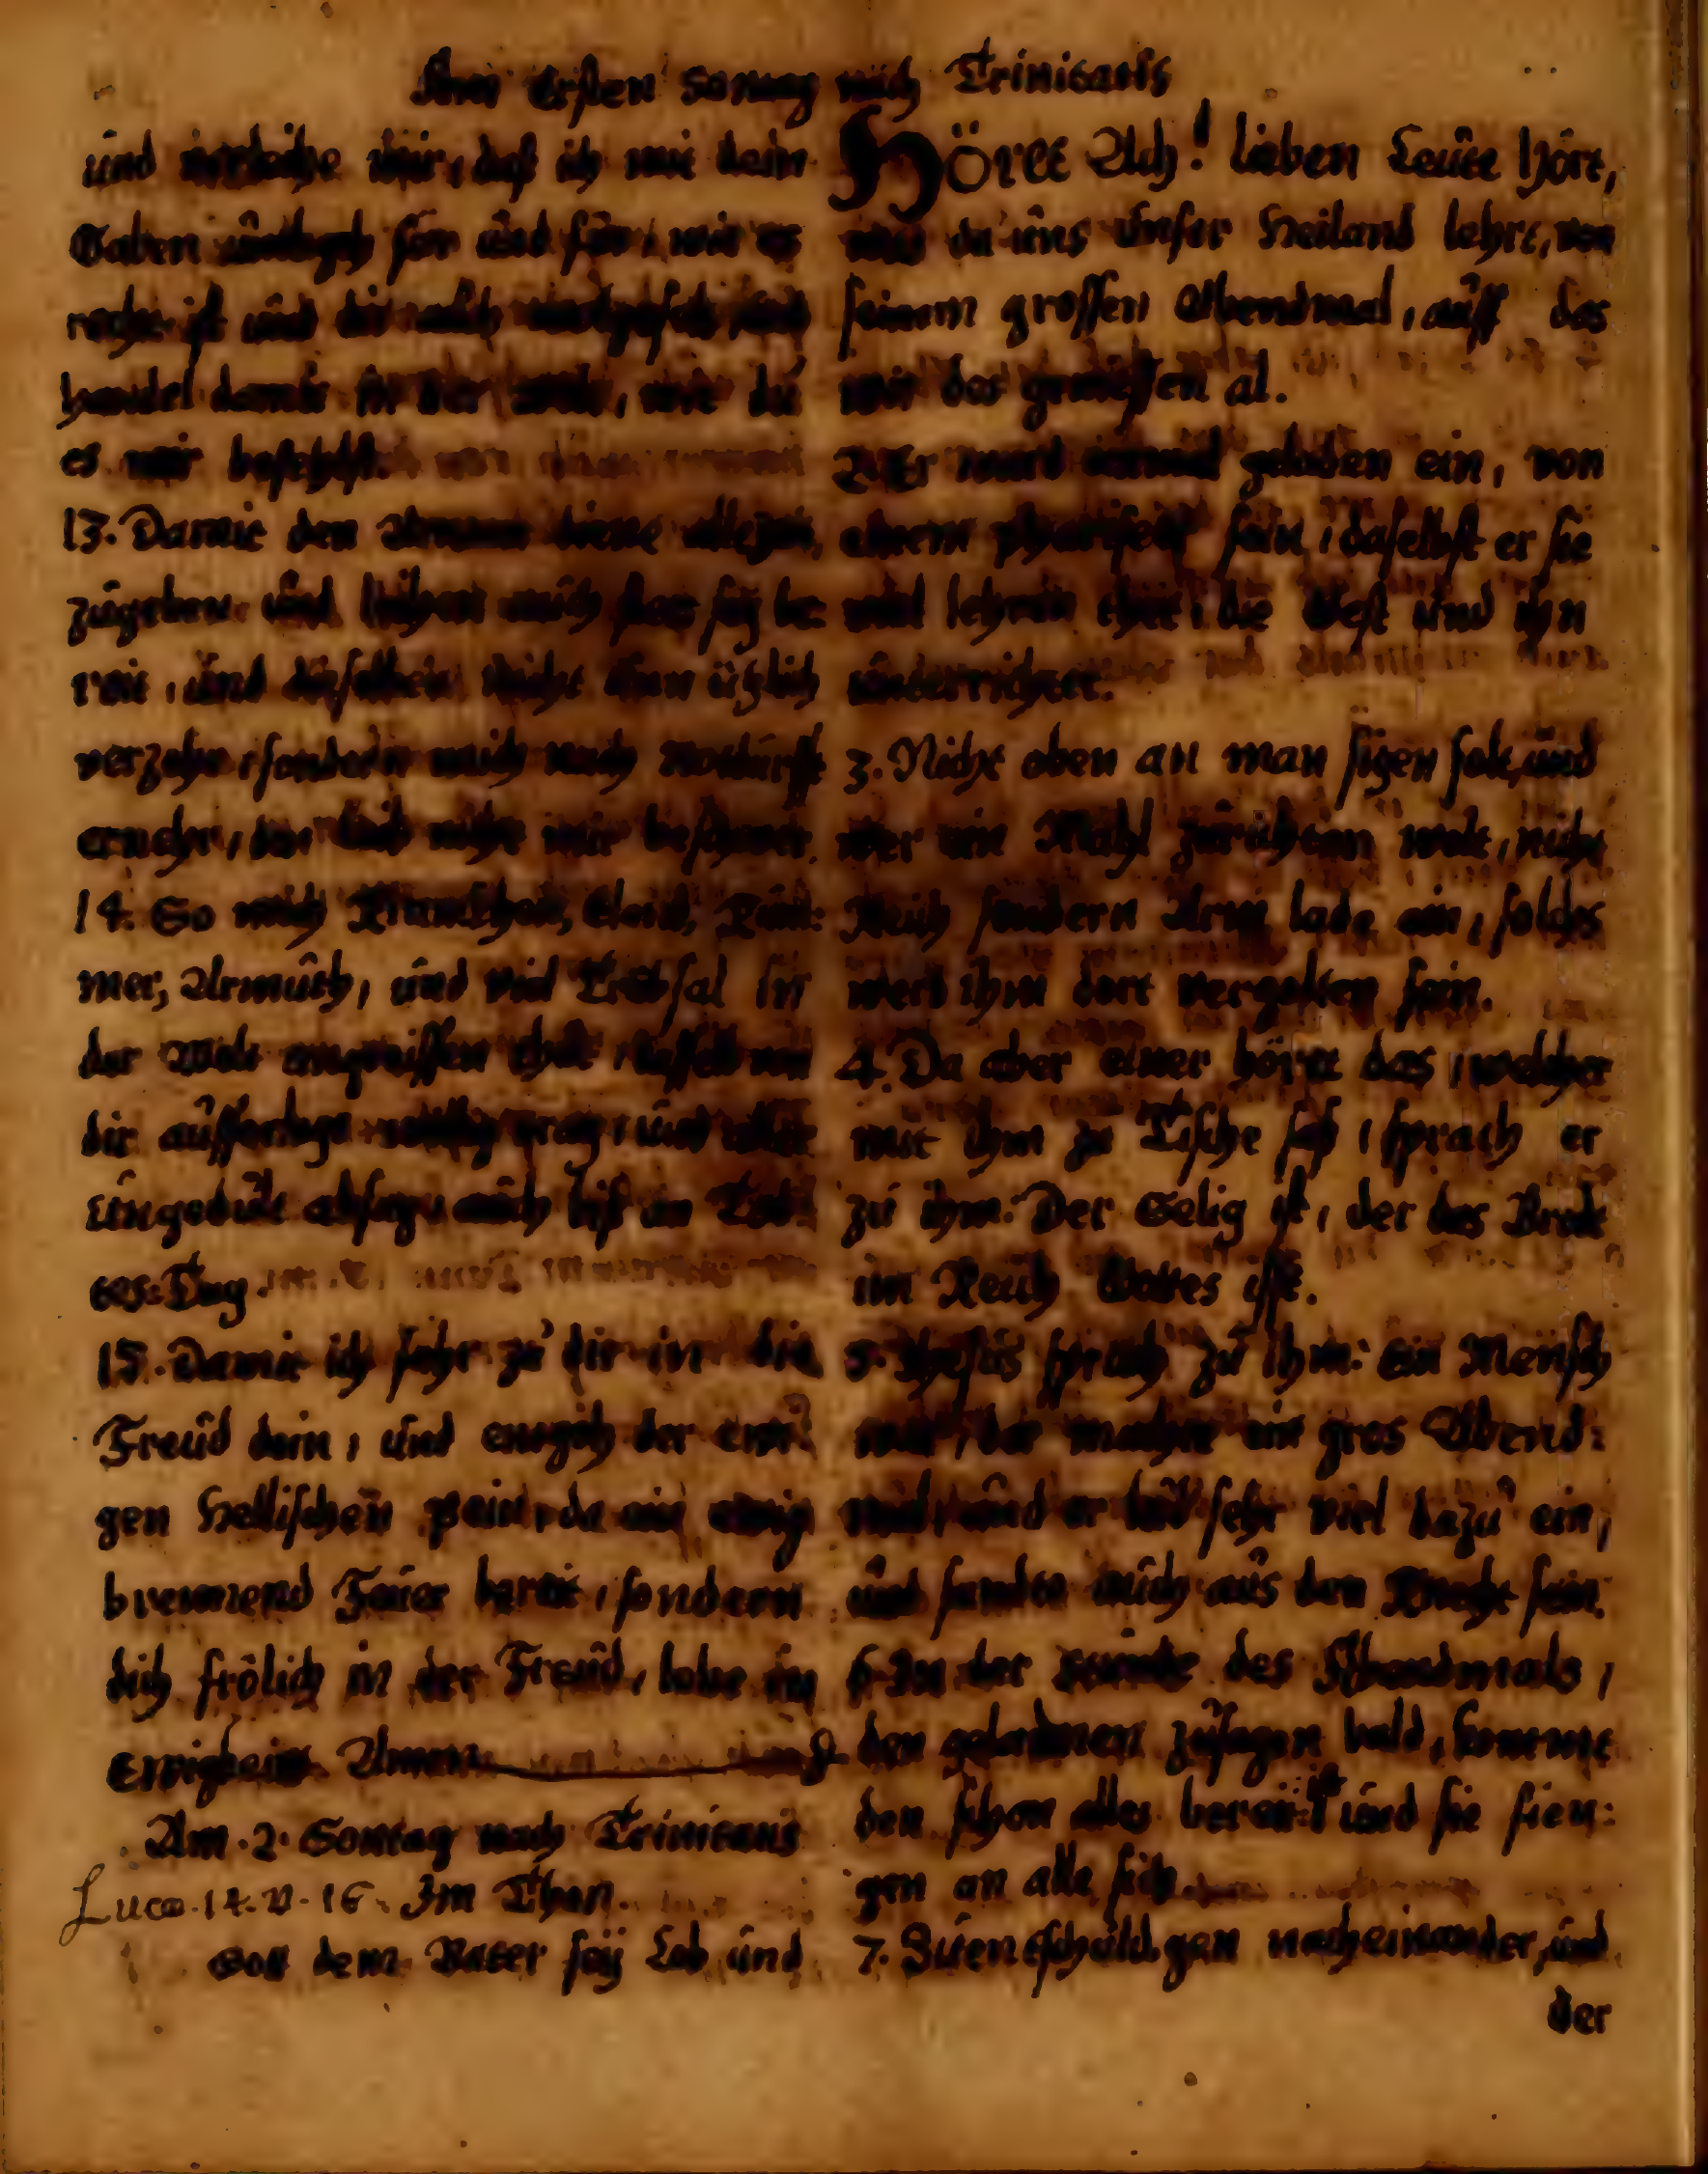 Am Ersten Sontag nach Trinitatis
und verleihe mir, daß ich mit dein
Gaben umbgeh for und für, wie es
recht ist und dir auch
handel damit in der welt, wie du
es mir befehlst.
13. Damit den Armen diene allezeit,
zugeben und leihen auch stez sey be:
reit, und denselben nicht
verzehr, sondern mich nach Notturfft
ernehr,
14. So mich Kranckheit, Elend, Küm:
mer, Armuth, und viel Trübsal in
der Welt angreiffen thut,
dir aufferlegt willig trag, und
Ungedult absag, auch biß an Tod:
tes: Tag.
15. Damit ich fahr zu dir in die
Freud dein, und entgeh der ewi:
gen Hellischen pein, da ein ewig
brennend Feuer bereit, sondern
dich frölich in der Freud, lobe in
Ewigkeit. Amen.
Am. 2. Sontag nach Trinitatis
Lucæ. 14. v. 16. Im Thon.
Gott dem Vater sey Lob und
Höret Ach! lieben Leute hört,
was da uns Unser Heiland lehrt, von
seinem grossen Abendmal, auff das
wir des geniessen al.
2. Er ward einmal geladen ein, von
einem phariseer fein, daselbst er sie
viel lehren thet, die Gest und ihn
underrichtet.
3. Nicht oben an man sitzen solt, und
wer ein Mahl zurichten wolt, nicht
Reich sondern Arm lade ein, solchs
wert ihm dort vergolten sein.
4. Da aber einer höret das, welcher
mit ihm zu Tische saß, sprach er
zu ihm: Der Selig ist, der das Brodt
im Reich Gottes isst.
5. Jhesus sprach zu ihm: ein Mensch
war, der machet ein gros Abend:
mal, und er lud sehr viel dazu ein,
und sandte auch aus den Knecht sein.
6. In der stunde des Abendmals,
den geladenen zusagen bald, kommt
den schon alles bereit ist und sie fien:
gen an alle sich.
7. Zuentschuldgen nacheinander, und
der